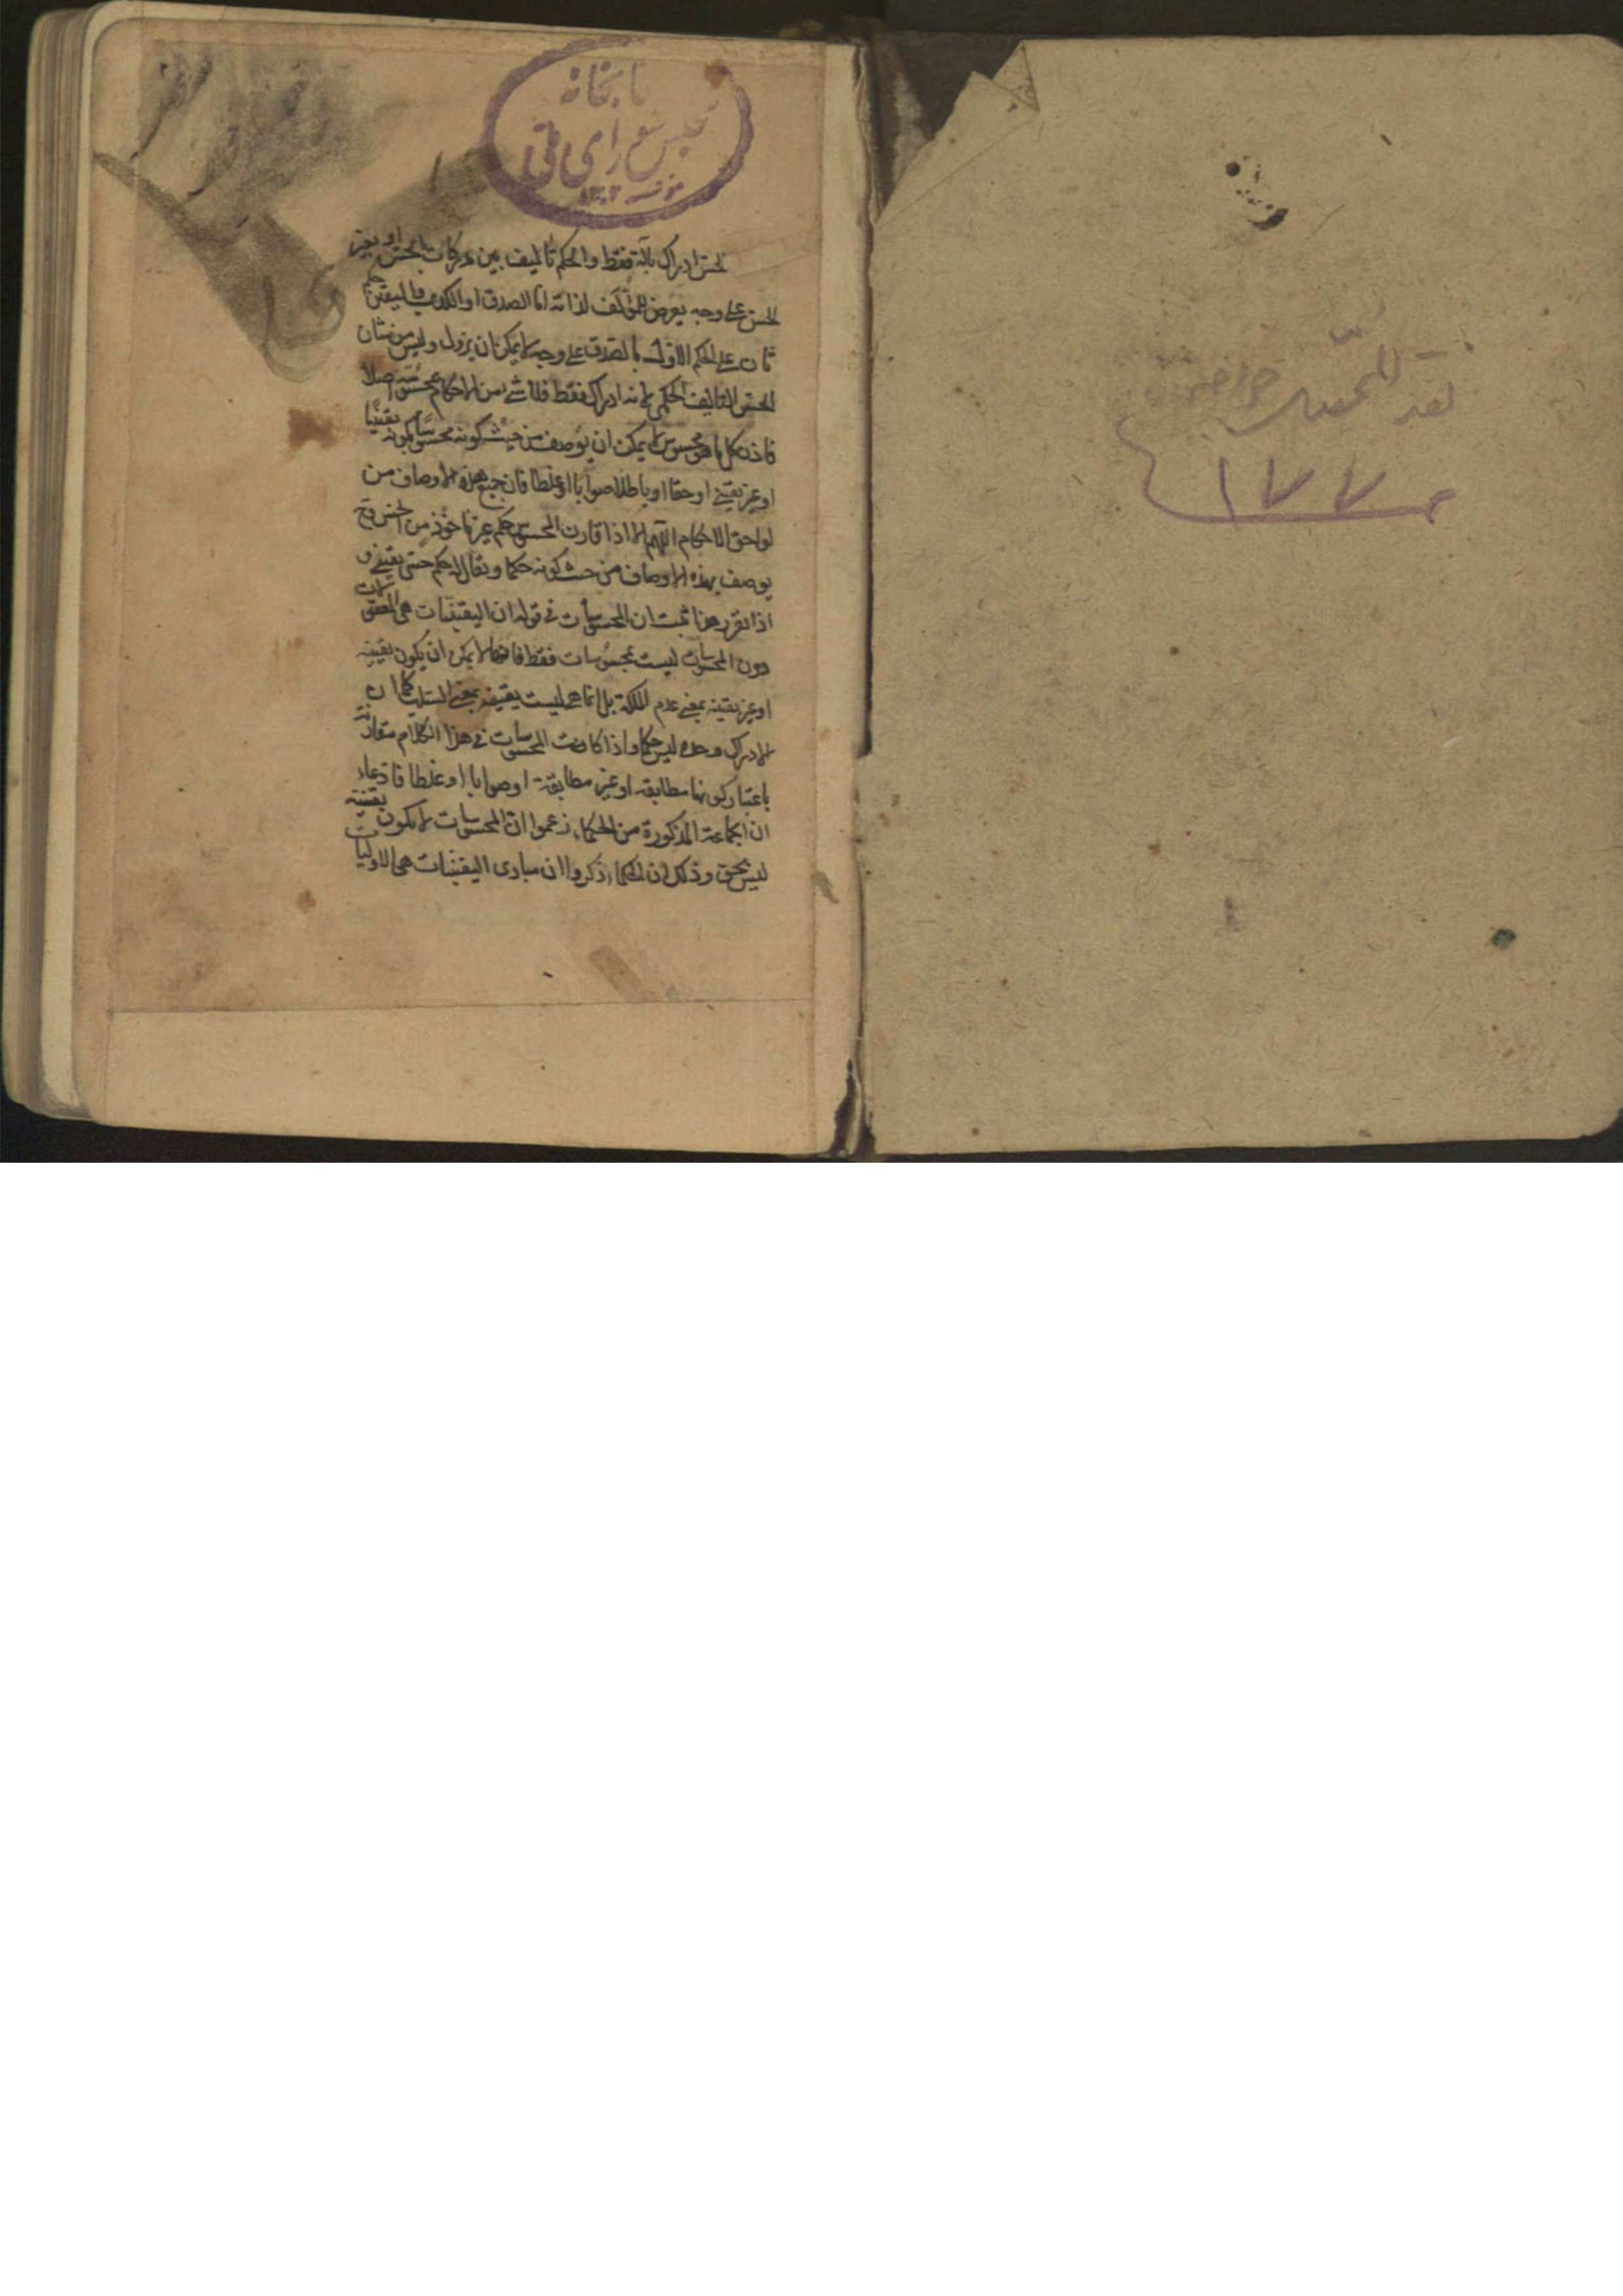 نقد المحصل خواجه نصیر
۱۷۷
کتابخانه
مجلس شورای ملی
مؤسسه ۱۳۰۲
الحس ادراك بآلة فقط والحكم تأليف بين مدركات بالحس او بغير
الحس على وجه يعرض للمؤلف لذاته اما الصدق او الكذب فاليقين حكم
ثان على الحكم الاول بالصدق على وجه لا يمكن ان يزول وليس من شان
الحس التاليف الحكمي لانه ادراك فقط فلا شيء من الاحكام بمحسوسة اصلا
فاذن كل ما هو محسوس لا يمكن ان يوصف من حيث كونه محسوسا بكونه يقينيا
او غير يقيني او حقا او باطلا صوابا او غلطا فان جميع هذه الاوصاف من
لواحق الاحكام اللهم الا اذا قارن المحسوس حكم غير ماخوذ من الحس وح
يوصف بهذه الاوصاف من حيث كونه حكما ويقال له حكم حسي يقيني و
اذا تقرر هذا ثبت ان المحسوسات في قوله ان اليقينيات هي المعقولات
دون المحسوسات ليست بمحسوسات فقط فانها لا يمكن ان يكون يقينيه
او غير يقينيه بمعنى عدم الملكة بل انما هي ليست يقينيه بمعنى السلب كما ان
الادراك وحده ليس حكما واذا كانت المحسوسات في هذا الكلام مقارنة
باعتبار كونها مطابقه او غير مطابقة او صوابا او غلطا فادعاء
ان الجماعة المذكورة من الحكماء زعموا ان المحسوسات لا يكون يقينية
ليس بحق وذلك ان الحكماء ذكروا ان مبادى اليقينيات هي الاوليات